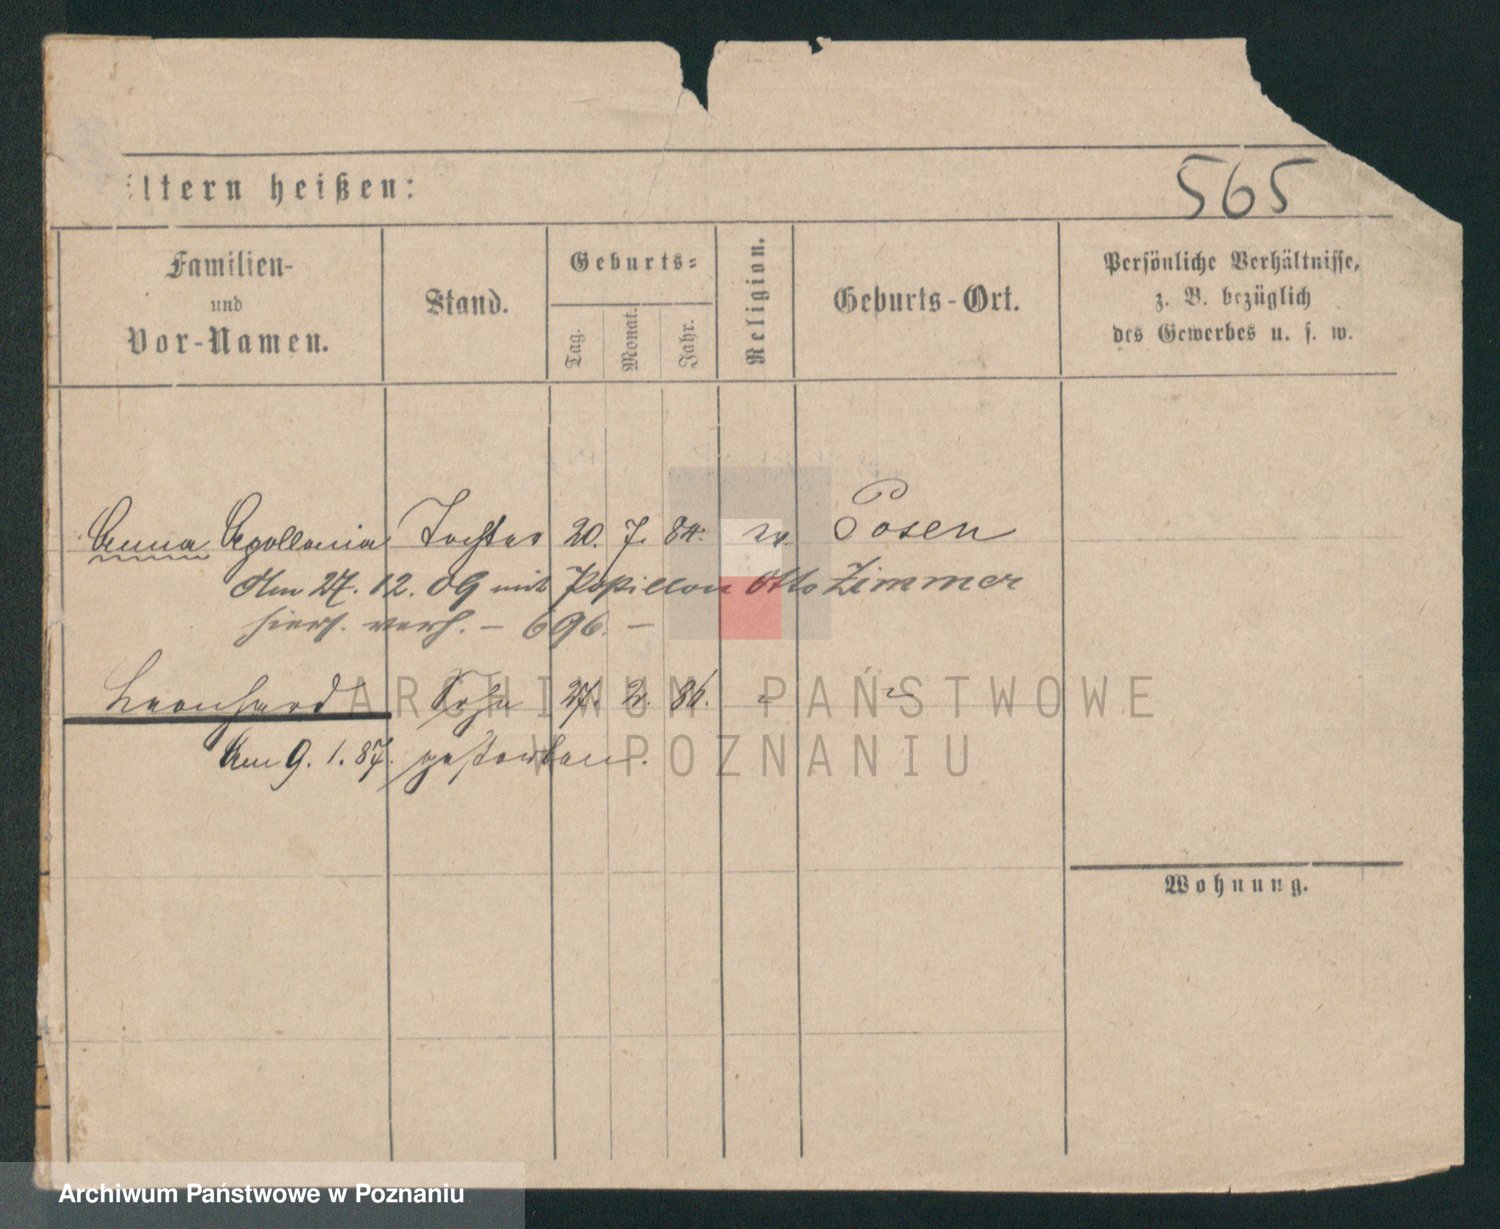 ltern heißen:
565
Familien-
und
Vor-Namen.
Stand.
Geburts-
Tag.
Monat.
Jahr.
Religion.
Geburts-Ort.
Persönliche Verhältnisse,
z. B. bezüglich
des Gewerbes u. s. w.
Anna Apollonia Tochter 20. 7. 84. Posen
Am 27. 12. 09 mit Otto Zimmer
hiers. verh. – 696. –
Leonhard Sohn 27. 2. 86. "
Am 9. 1. 87. gestorben.
Wohnung.
ARCHIWUM PAŃSTWOWE
W POZNANIU
Archiwum Państwowe w Poznaniu